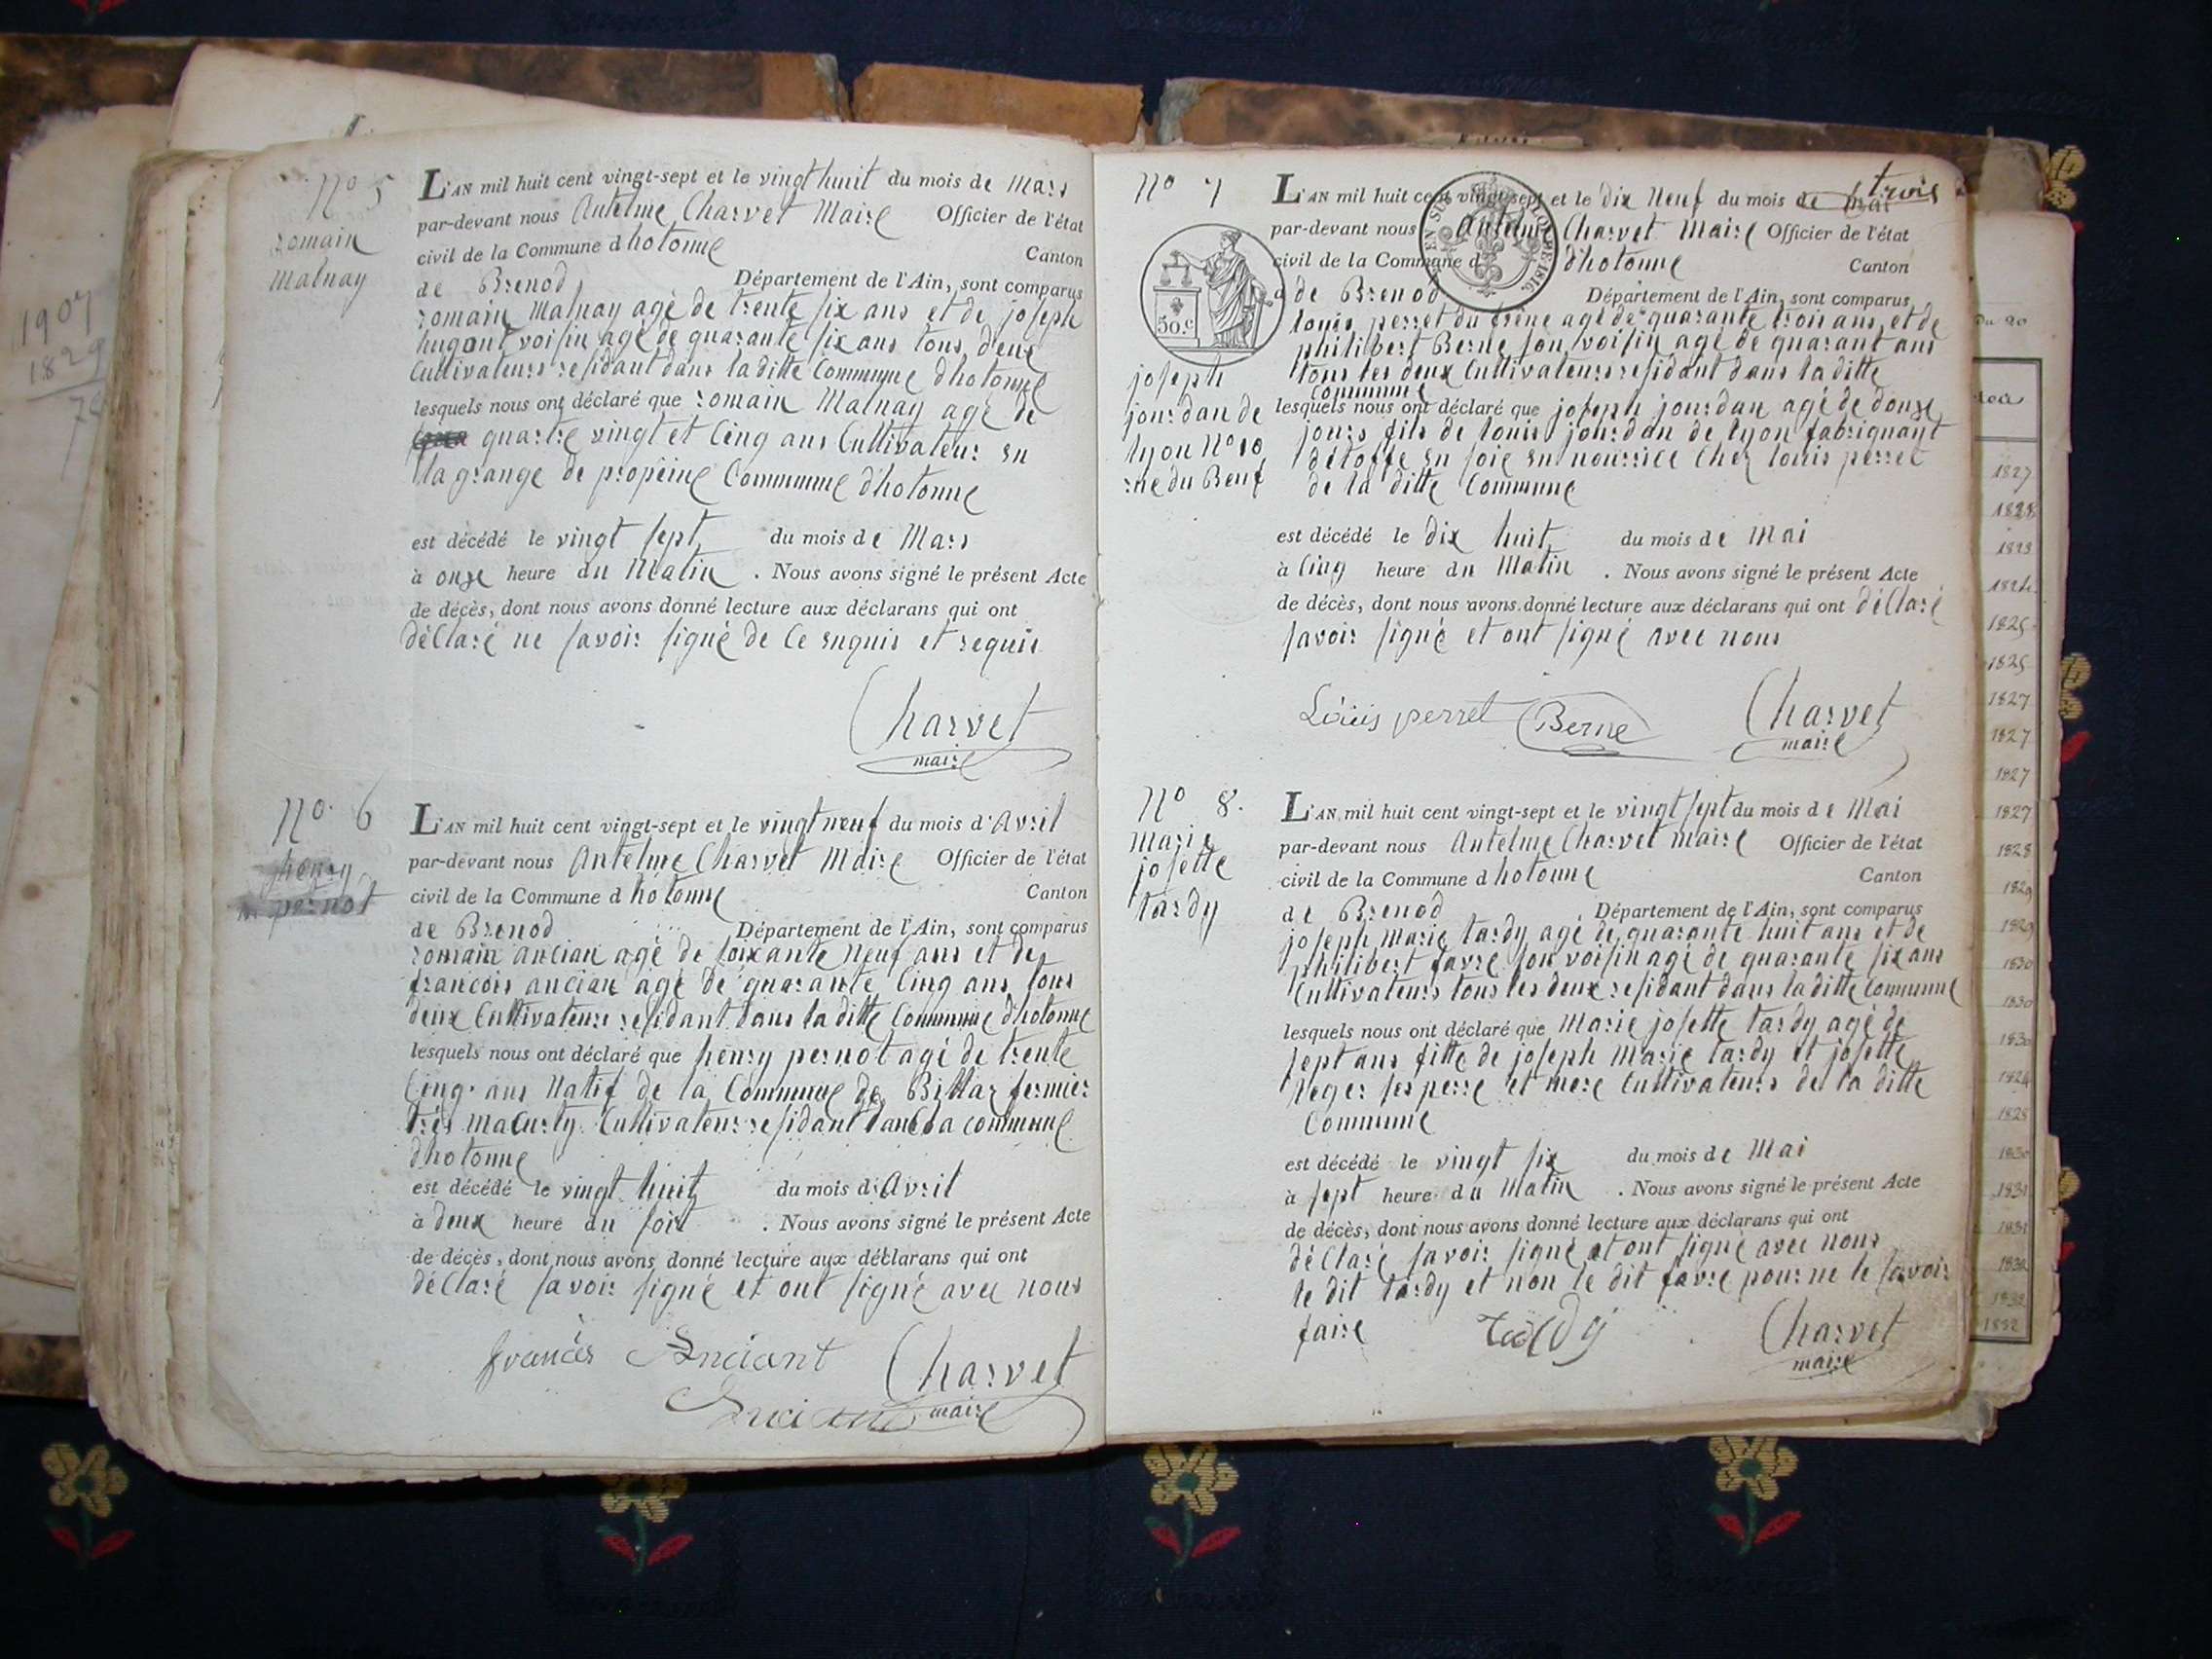 1907
1829
N° 5
romain
Malnay
L'AN mil huit cent vingt-sept et le vingt huit du mois de Mars
par-devant nous Antelme Charvet Maire Officier de l'état
civil de la Commune dhotonne Canton
de Brenod Département de l'Ain, sont comparus
romain Malnay agé de trente six ans et de joseph
hugont voisin agé de quarante six ans tous deux
Cultivateurs residant dans la ditte Commune dhotonne
lesquels nous ont déclaré que romain Malnay agé de
quartre vingt et Cinq ans Cultivateur en
la grange de propeine Commune dhotonne
est décédé le vingt sept du mois de Mars
à onze heure du Matin . Nous avons signé le présent Acte
de décès, dont nous avons donné lecture aux déclarans qui ont
déClaré ne savoir signé de Ce enquis et requis
Charvet
maire
N° 6
henry
pernot
L'AN mil huit cent vingt-sept et le vingt neuf du mois d'Avril
par-devant nous Antelme Charvet Maire Officier de l'état
civil de la Commune dhotonne Canton
de Brenod Département de l'Ain, sont comparus
romain ancian agé de soixante Neuf ans et de
francois ancian agé de quarante Cinq ans tous
deux Cultivateurs residant dans la ditte Commune dhotonne
lesquels nous ont déclaré que henry pernot agé de trente
Cinq ans Natif de la Commune de Billiaz fermier
Cultivateur residant dans la commune
dhotonne
est décédé le vingt huit du mois d'Avril
à deux heure du soir . Nous avons signé le présent Acte
de décès, dont nous avons donné lecture aux déclarans qui ont
déClaré savoir signé et ont signé avec nous
francès Anciant Charvet
Anciant maire
trois
N° 7
L'AN mil huit cent vingt-sept et le dix Neuf du mois de Mai
par-devant nous Antelme Charvet Maire Officier de l'état
civil de la Commune d dhotonne Canton
de Brenod Département de l'Ain, sont comparus
50 c
louis perret du frêne agé de quarante trois ans et de
philibert Berne son voisin agé de quarant ans
tous les deux Cultivateurs residant dans la ditte
Commune
joseph
jourdan de
lyon N° 10
rue du Beuf
lesquels nous ont déclaré que joseph jourdan agé de douze
jours fils de louis jourdan de lyon fabriquant
détoffe en soie en nourrice Chez louis perret
de la ditte Commune
est décédé le dix huit du mois de Mai
à Cinq heure du Matin . Nous avons signé le présent Acte
de décès, dont nous avons donné lecture aux déclarans qui ont déClaré
savoir signé et ont signé avec nous
Louis perret Berne Charvet
maire
N° 8.
Marie
josette
tardy
L'AN mil huit cent vingt-sept et le vingt sept du mois de Mai
par-devant nous Antelme Charvet Maire Officier de l'état
civil de la Commune dhotonne Canton
de Brenod Département de l'Ain, sont comparus
joseph Marie tardy agé de quarante huit ans et de
philibert favre son voisin agé de quarante six ans
Cultivateurs tous les deux residant dans la ditte Commune
lesquels nous ont déclaré que Marie josette tardy agé de
sept ans fille de joseph Marie tardy et josette
ses perre et mere Cultivateurs de la ditte
Commune
est décédé le vingt six du mois de Mai
à sept heure du Matin . Nous avons signé le présent Acte
de décès, dont nous avons donné lecture aux déclarans qui ont
déClaré savoir signé et ont signé avec nous
le dit tardy et non le dit favre pour ne le savoir
faire tardy Charvet
maire
1827
1828
1825
1825
1827
1827
1827
1827
1828
1829
1829
1830
1830
1830
1824
1828
1830
1831
1831
1832